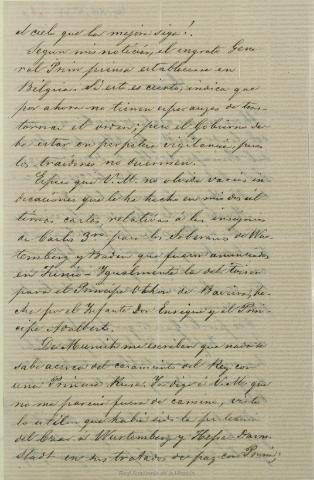 el cielo que la mejoría siga!.
Segun mis noticias, el ingrato Gene-
ral Prim piensa establecerse en
Belgica. Si esto es cierto, indica que
por ahora no tienen esperanzas de tras-
tornar el orden; pero el Gobierno de-
be estar en perpetua vigilancia, pues
los traidores no duermen.
Espero que V.M. no olvide varias in-
dicaciones que le he hecho en mis dos úl-
timas cartas relativas á las insignias
de Carlos 3ro para los Soberanos de Wur-
temberg y Baden que fueron anunciadas
en Junio - Igualmente la del Toison
para el Principe Othon de Baviera, he-
cha por el Infante Don Enrique y el Prin-
cipe Adalberto.
De Munich me escriben que nada se
sabe acerca del casamiento del Rey con
una Princesa Rusa. Ya dige á V.M. que
no me parecia fuera de camino, visto
lo util que habia sido la proteccion
del Czar á Wurtemberg y Hesse Darm-
stadt en sus tratados de paz con Prusia;
Real Academia de la Historia